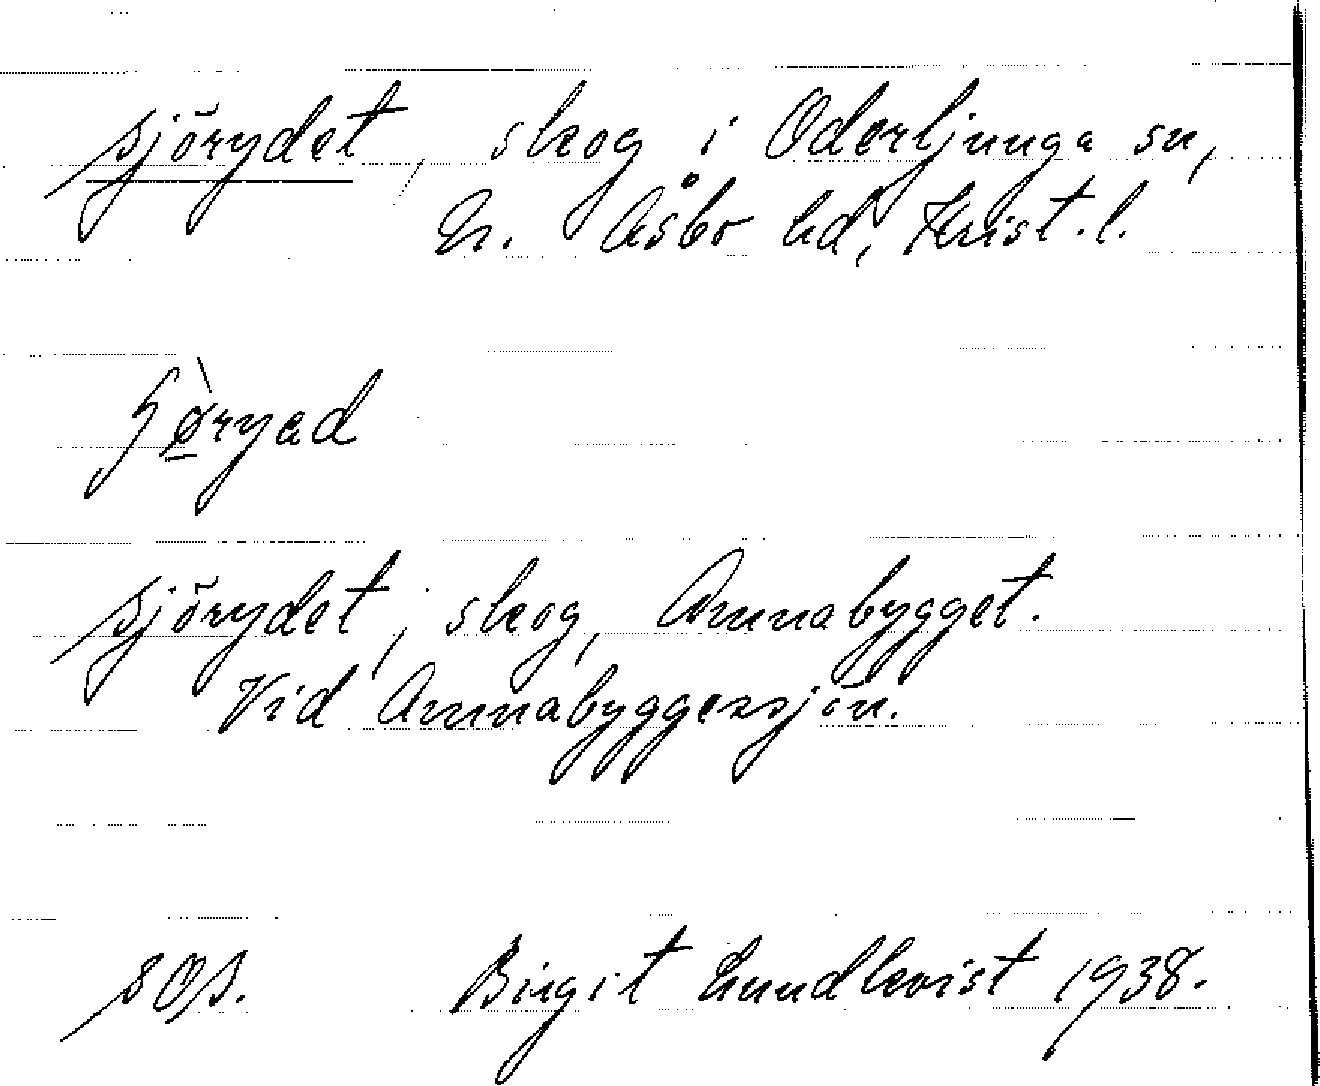 Sjörydet, skog i Oderljunga sn,
N. Åsbo hd, Krist.l.
ɧø̠̀ryad
Sjörydet, skog, Annabygget.
Vid Annabyggessjön.
SOS. Birgit Lundkvist 1938.